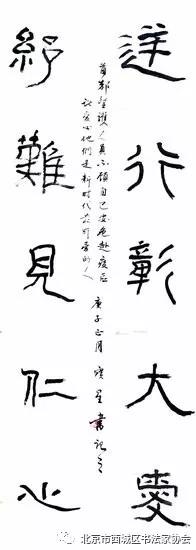 逆行彰大愛
首都醫護人員不顧自己安危赴疫區
愛心他們是新時代最可愛的人
庚子正月 星書記之
紓難見仁心
北京市西城区书法家协会